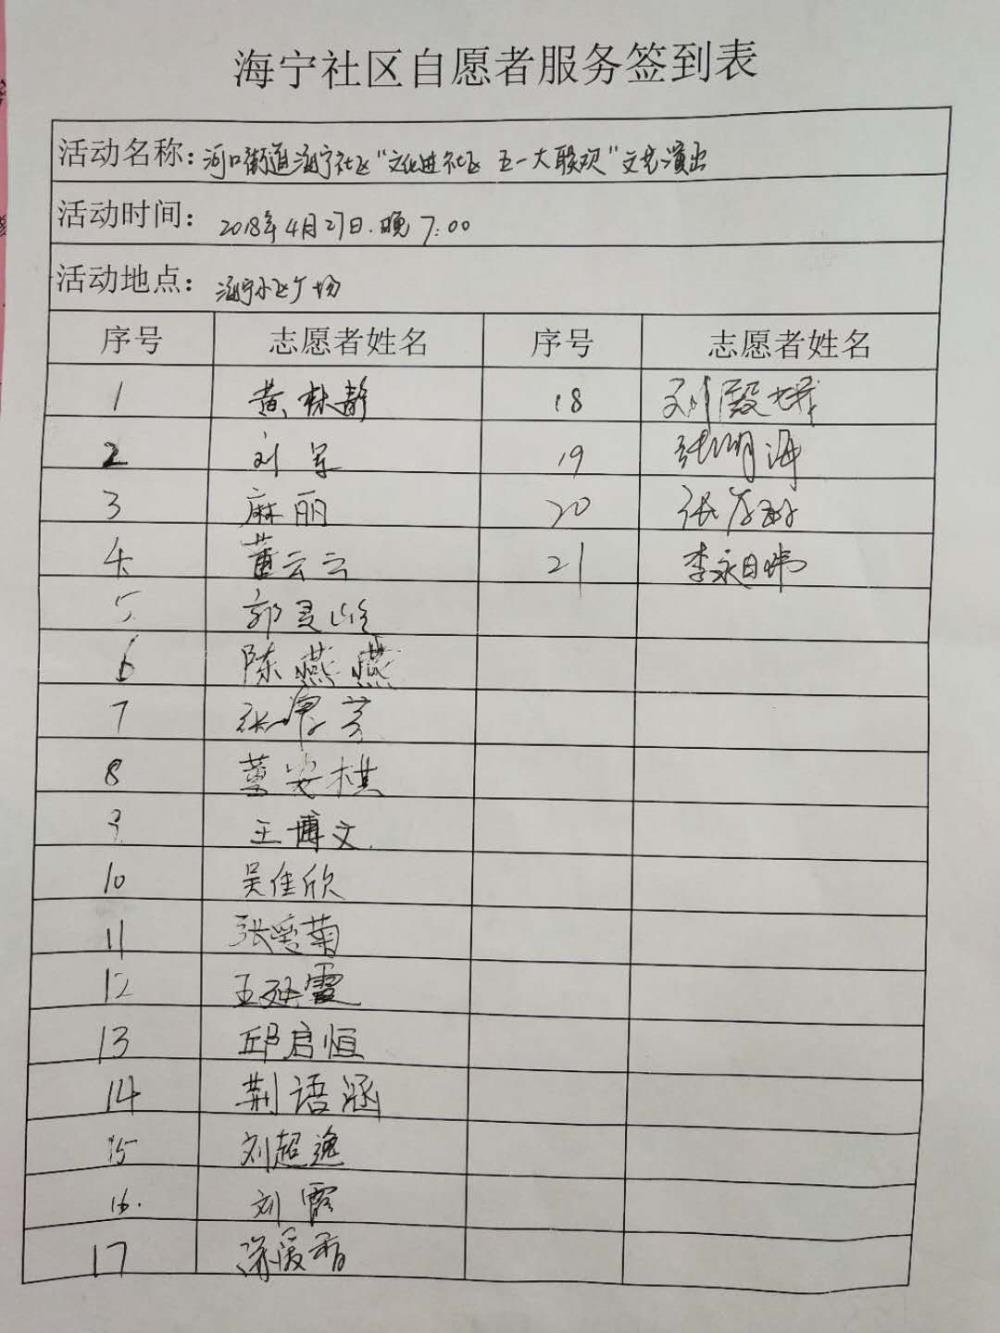 海宁社区自愿者服务签到表
活动名称：河口街道海宁社区“文化进社区 五一大联欢”文艺演出
活动时间：2018年4月27日.晚7:00
活动地点：海宁小区广场
序号 志愿者姓名 序号 志愿者姓名
1 黄林静 18 刘殿
2 刘军 19 张明海
3 麻丽 20 张
4 董云云 21 李永
5 郭灵
6 陈燕燕
7 张 芳
8 葛安棋
9 王博文
10 吴佳欣
11 张爱菊
12 王 霞
13 邱启恒
14 荆语涵
15 刘超逸
16. 刘霞
17